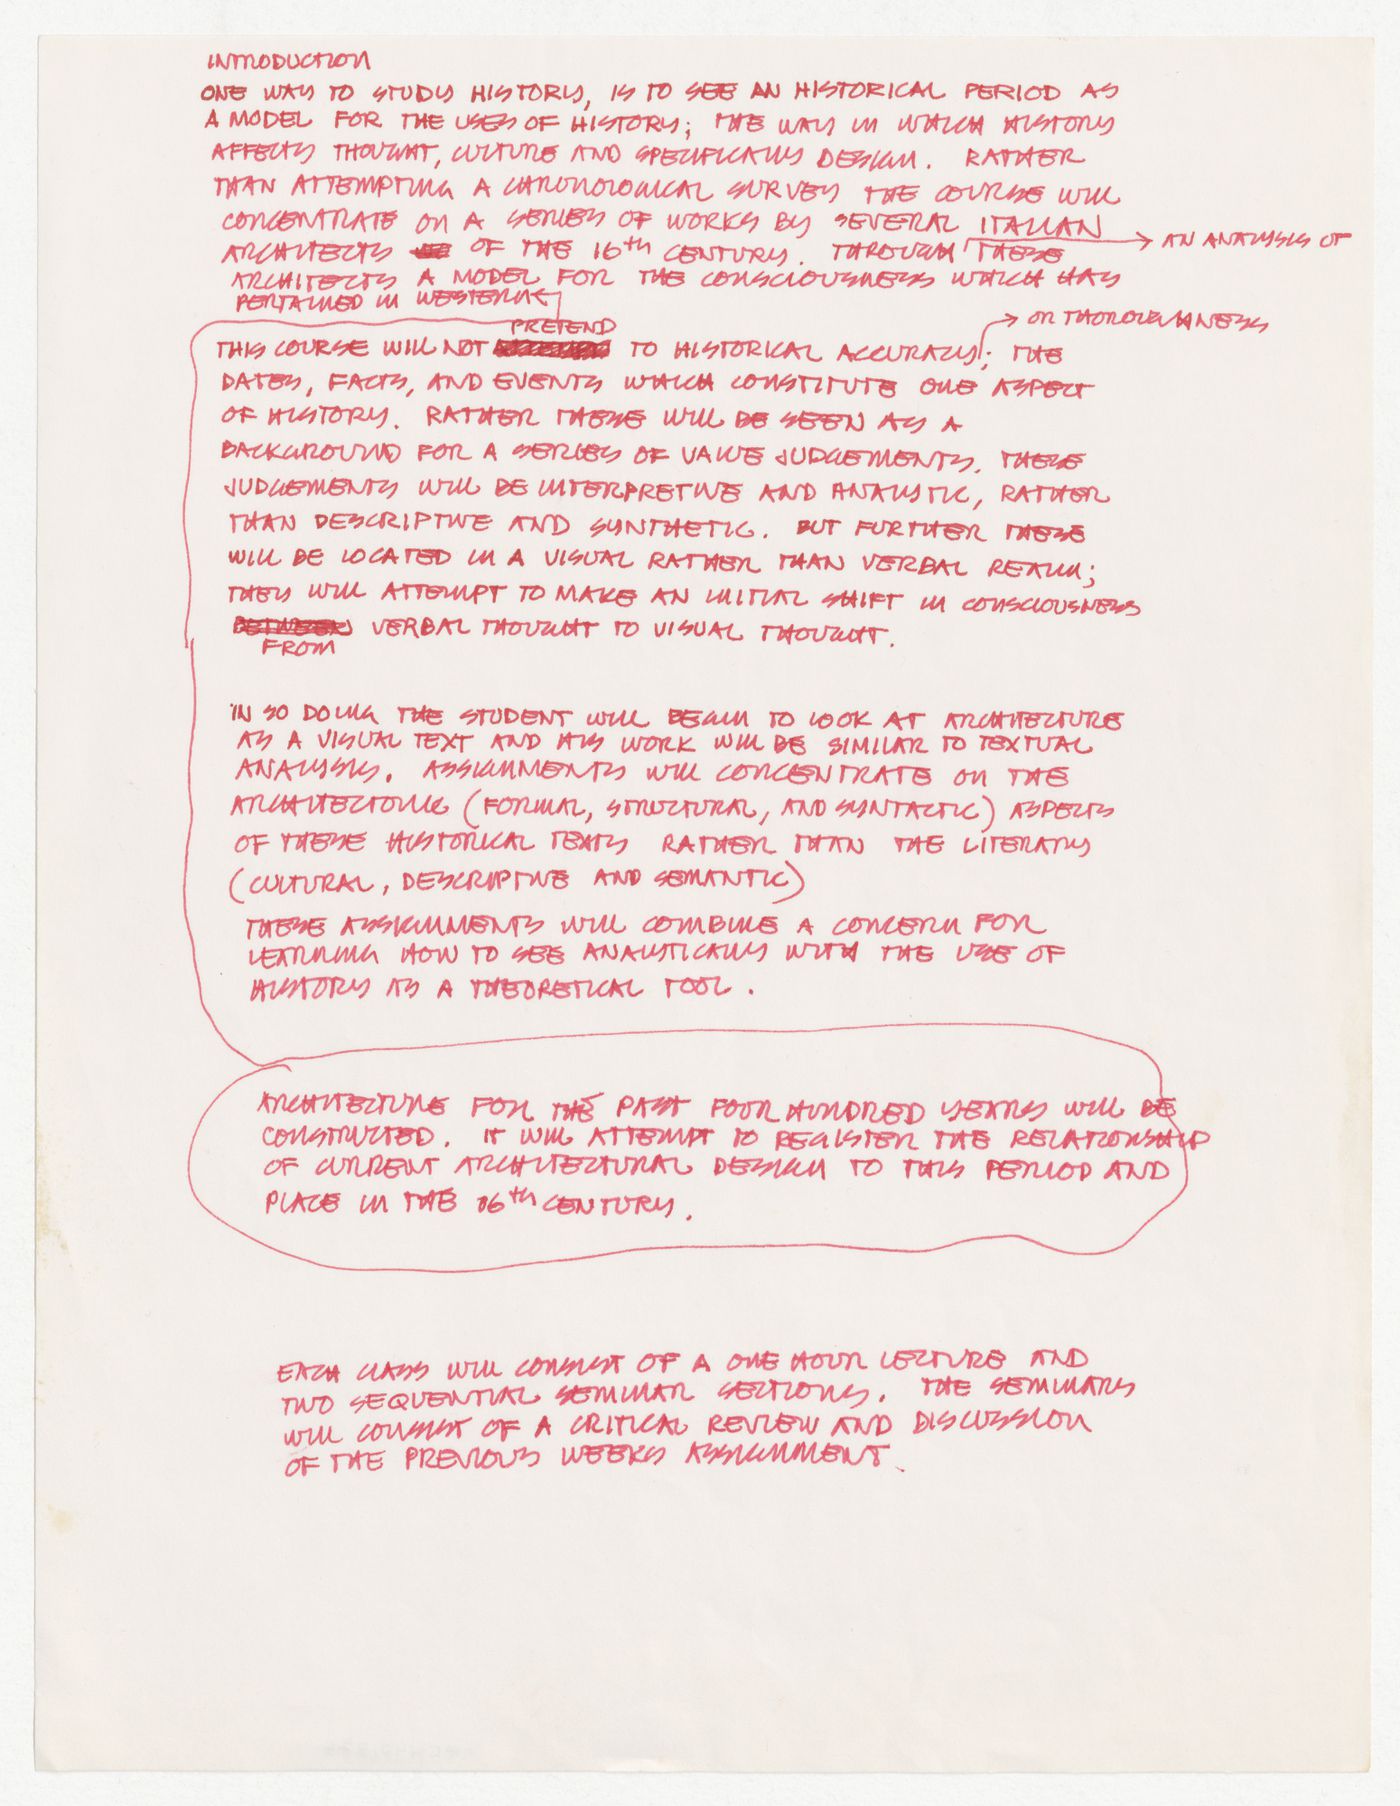 INTRODUCTION
ONE WAY TO STUDY HISTORY, IS TO SEE AN HISTORICAL PERIOD AS
A MODEL FOR THE USES OF HISTORY; THE WAY IN WHICH HISTORY
AFFECTS THOUGHT, CULTURE AND SPECIFICALLY DESIGN. RATHER
THAN ATTEMPTING A CHRONOLOGICAL SURVEY THE COURSE WILL
CONCENTRATE ON A SERIES OF WORKS BY SEVERAL ITALIAN
ARCHITECTS OF THE 16th CENTURY. THROUGH THESE
AN ANALYSIS OF
ARCHITECTS A MODEL FOR THE CONSCIOUSNESS WHICH HAS
PERTAINED IN WESTERN
PRETEND
OR THOROUGHNESS
THIS COURSE WILL NOT TO HISTORICAL ACCURACY; THE
DATES, FACTS, AND EVENTS WHICH CONSTITUTE ONE ASPECT
OF HISTORY. RATHER THESE WILL BE SEEN AS A
BACKGROUND FOR A SERIES OF VALUE JUDGEMENTS. THESE
JUDGEMENTS WILL BE INTERPRETIVE AND ANALYTIC, RATHER
THAN DESCRIPTIVE AND SYNTHETIC. BUT FURTHER THESE
WILL BE LOCATED IN A VISUAL RATHER THAN VERBAL REALM;
THEY WILL ATTEMPT TO MAKE AN INITIAL SHIFT IN CONSCIOUSNESS
BETWEEN VERBAL THOUGHT TO VISUAL THOUGHT.
FROM
IN SO DOING THE STUDENT WILL BEGIN TO LOOK AT ARCHITECTURE
AS A VISUAL TEXT AND HIS WORK WILL BE SIMILAR TO TEXTUAL
ANALYSIS. ASSIGNMENTS WILL CONCENTRATE ON THE
ARCHITECTONIC (FORMAL, STRUCTURAL, AND SYNTACTIC) ASPECTS
OF THESE HISTORICAL TEXTS RATHER THAN THE LITERARY
(CULTURAL, DESCRIPTIVE AND SEMANTIC)
THESE ASSIGNMENTS WILL COMBINE A CONCERN FOR
LEARNING HOW TO SEE ANALYTICALLY WITH THE USE OF
HISTORY AS A THEORETICAL TOOL.
ARCHITECTURE FOR THE PAST FOUR HUNDRED YEARS WILL BE
CONSTRUCTED. IT WILL ATTEMPT TO REGISTER THE RELATIONSHIP
OF CURRENT ARCHITECTURAL DESIGN TO THIS PERIOD AND
PLACE IN THE 16th CENTURY.
EACH CLASS WILL CONSIST OF A ONE HOUR LECTURE AND
TWO SEQUENTIAL SEMINAR SECTIONS. THE SEMINARS
WILL CONSIST OF A CRITICAL REVIEW AND DISCUSSION
OF THE PREVIOUS WEEKS ASSIGNMENT.